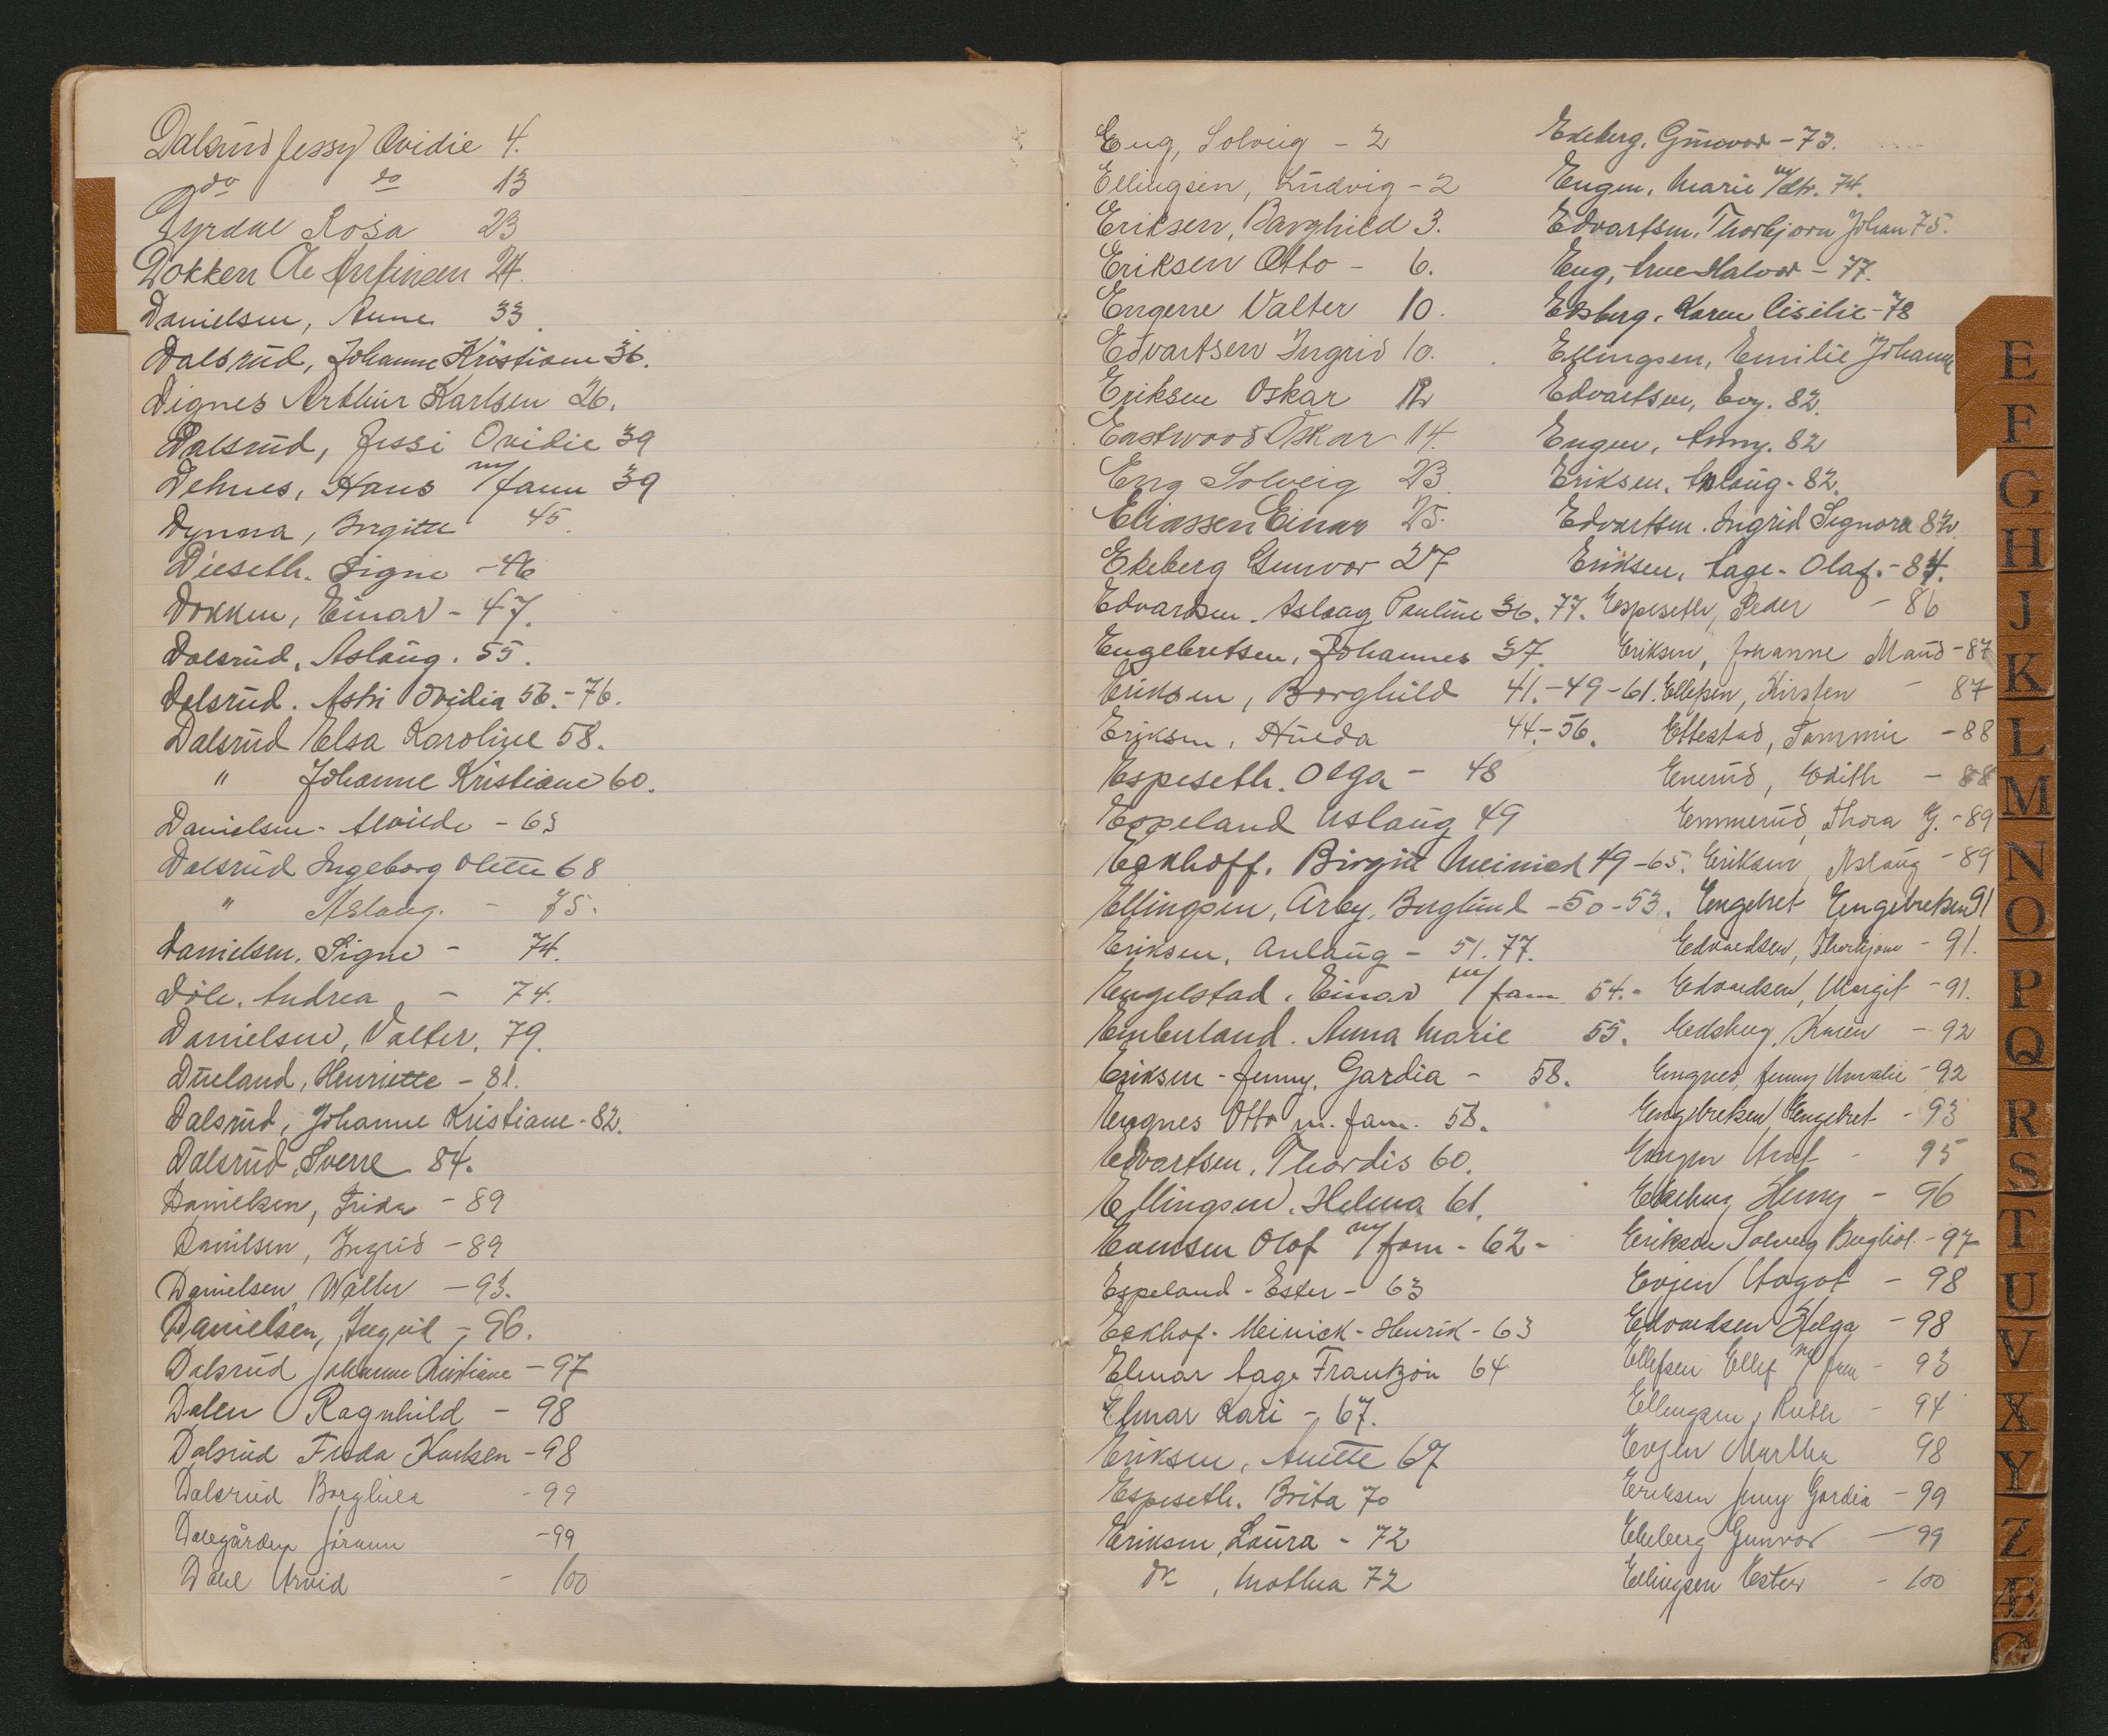 Dalsrud Jessy Ovidie 4.
do do 13
Gyrdal Rosa 23
Dokken Ole 24.
Danielsen, Anne 33.
Dalsrud, Johanne Kristiane 36.
Dignes Arthur Karlsen 26.
Dalsrud, Jessi Ovidie 39
Dehnes, Hans m/fam 39
Dynna, Birgitte 45.
Dieseth. Signe - 46
Dokken, Einar - 47.
Dalsrud, Aslaug. 55.
Dalsrud. Astri Ovidia 56.-76.
Dalsrud Elsa Karoline 58.
" Johanne Kristiane 60.
Danielsen - Alvilde - 63
Dalsrud Ingeborg Olette 68
" Aslaug. - 75.
Danielsen. Signe - 74.
Døle. Andrea - 74.
Danielsen, Valter. 79.
Dueland, Henriette - 81.
Dalsrud, Johanne Kristiane - 82.
Dalsrud, Sverre 84.
Danielsen, Frida - 89
Danielsen, Ingrid - 89
Danielsen Walter - 93.
Danielsen, Ingrid - 96.
Dalsrud Johanne Kristiane - 97
Dalen Ragnhild - 98
Dalsrud Frida Karlsen - 98
Dalsrud Borghild - 99
Dalegården Jørann - 99
Dahl Arvid - 100
Eng, Solveig - 2
Ellingsen, Ludvig - 2
Eriksen, Borghild 3.
Eriksen Otto - 6.
Engene Valter 10.
Edvartsen Ingrid 10.
Eriksen Oskar 12
Eastwood Oskar 14.
Eng Solveig 23
Eliassen Einar 25.
Ekeberg Gunvor 27
Edvardsen. Aslaug Pauline 36. 77.
Engebretsen, Johannes 37.
Eriksen, Borghild 41.-49-61.
Eriksen, Hulda 44.-56.
Espeseth. Olga - 48
Espeland Aslaug 49
Eckhoff. Birgit Meinich 49-65.
Ellingsen, Arby, Berglund - 50-53.
Eriksen, Anlaug - 51. 77.
Engelstad. Einar m/fam 54.
Embenland. Anna Marie 55.
Eriksen - Jenny. Gardia - 58.
Engnes Otto m. fam. 58.
Edvartsen. Thordis 60.
Ellingsen, Helma 61.
Olof m/fam - 62 -
Espeland - Ester - 63
Eckhof - Meinick - Henrik - 63
Elmar Aage Frantzon 64
Elmar Kari - 67.
Eriksen, Anette 67
Espeseth. Brita 70
Eriksen, Laura - 72
do, Mathea 72
Ekeberg, Gunvor - 73.
Engen, Marie m/dtr. 74.
Edvartsen. Thorbjørn Johan 75.
Eng, Arne Halvor - 77.
Edsberg, Karen Cisilie - 78
Ellingsen, Emilie Johanne
Edvartsen, Evy. 82.
Engen, Anny. 82
Eriksen, Anlaug - 82.
Edvartsen. Ingrid Signora 82.
Eriksen, Aage - Olaf. - 84.
Espeseth, Peder - 86
Eriksen, Johanne Maud - 87
Ellefsen, Kirsten - 87
Ettestad, Tommie - 88
Enerud, Edith - 88
Emmerud, Thora G. - 89
Eriksen, Aslaug - 89
Engebret Engebretsen 91
Edvardsen, Thorbjørn - 91.
Edvardsen, Margit - 91.
Edsberg, Karen - 92
Engnes, Jenny Amalie - 92
Engebretsen, Engebret - 93
Engen - 95
Ekeberg Henry - 96
Eriksen Solveig Berghild - 97
Evjen Aagot - 98
Edvardsen Helga - 98
Ellefsen Ellef m/fam - 93
Ellingsen, Ruth - 94
Evjen Martha 98
Eriksen Jenny Gardia - 99
Ekeberg Gunvor - 99
Ellingsen Ester - 100
E
F
G
H
J
K
L
M
N
O
P
Q
R
S
T
U
V
X
Y
Z
Æ
Ø